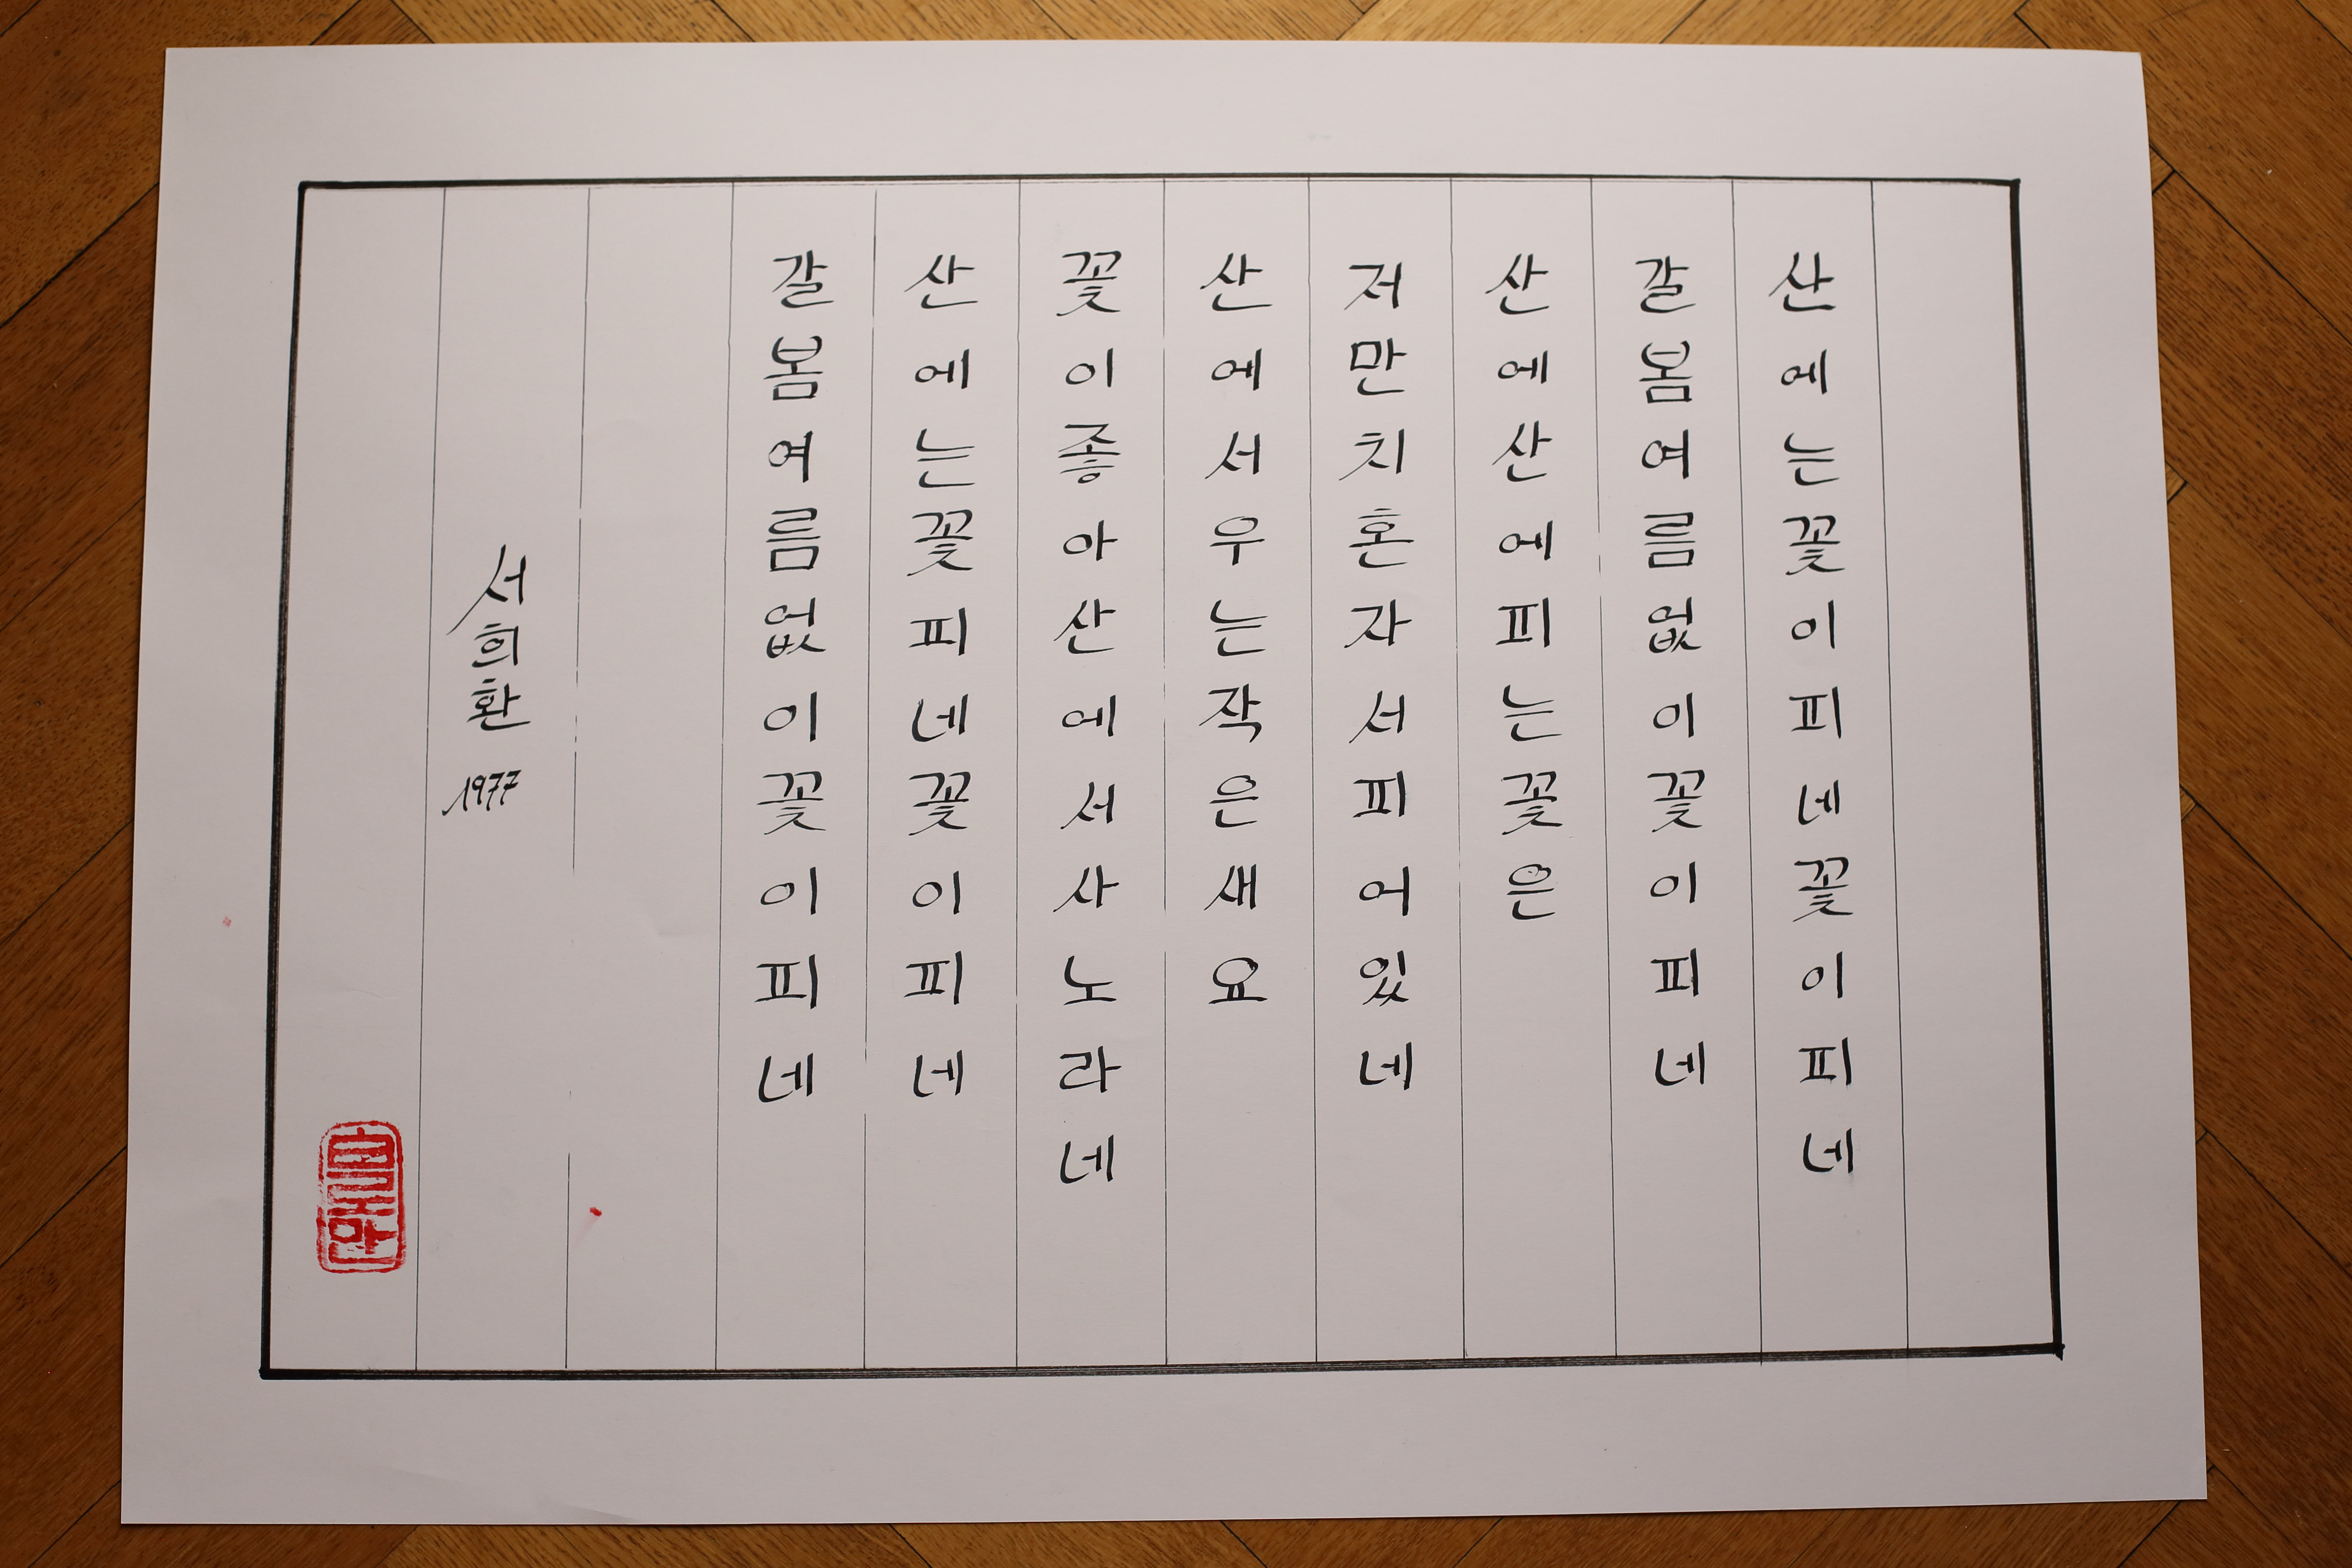 산에는꽃이피네꽃이피네
갈봄여름없이꽃이피네
산에산에피는꽃은
저만치혼자서피어있네
산에서우는작은새요
꽃이좋아산에서사노라네
산에는꽃피네꽃이피네
갈봄여름없이꽃이피네
서희환
1977